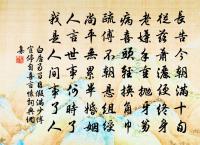 長告今朝滿十旬
從茲蕭洒便終身
老嫌手重拋牙笏
病喜頭輕換角巾
疏傅不朝懸組綬
尚平無累畢婚姻
人言世事何時了
我是人間事了人
白居易百日假滿少傅
官停自喜言懷詞典網
集